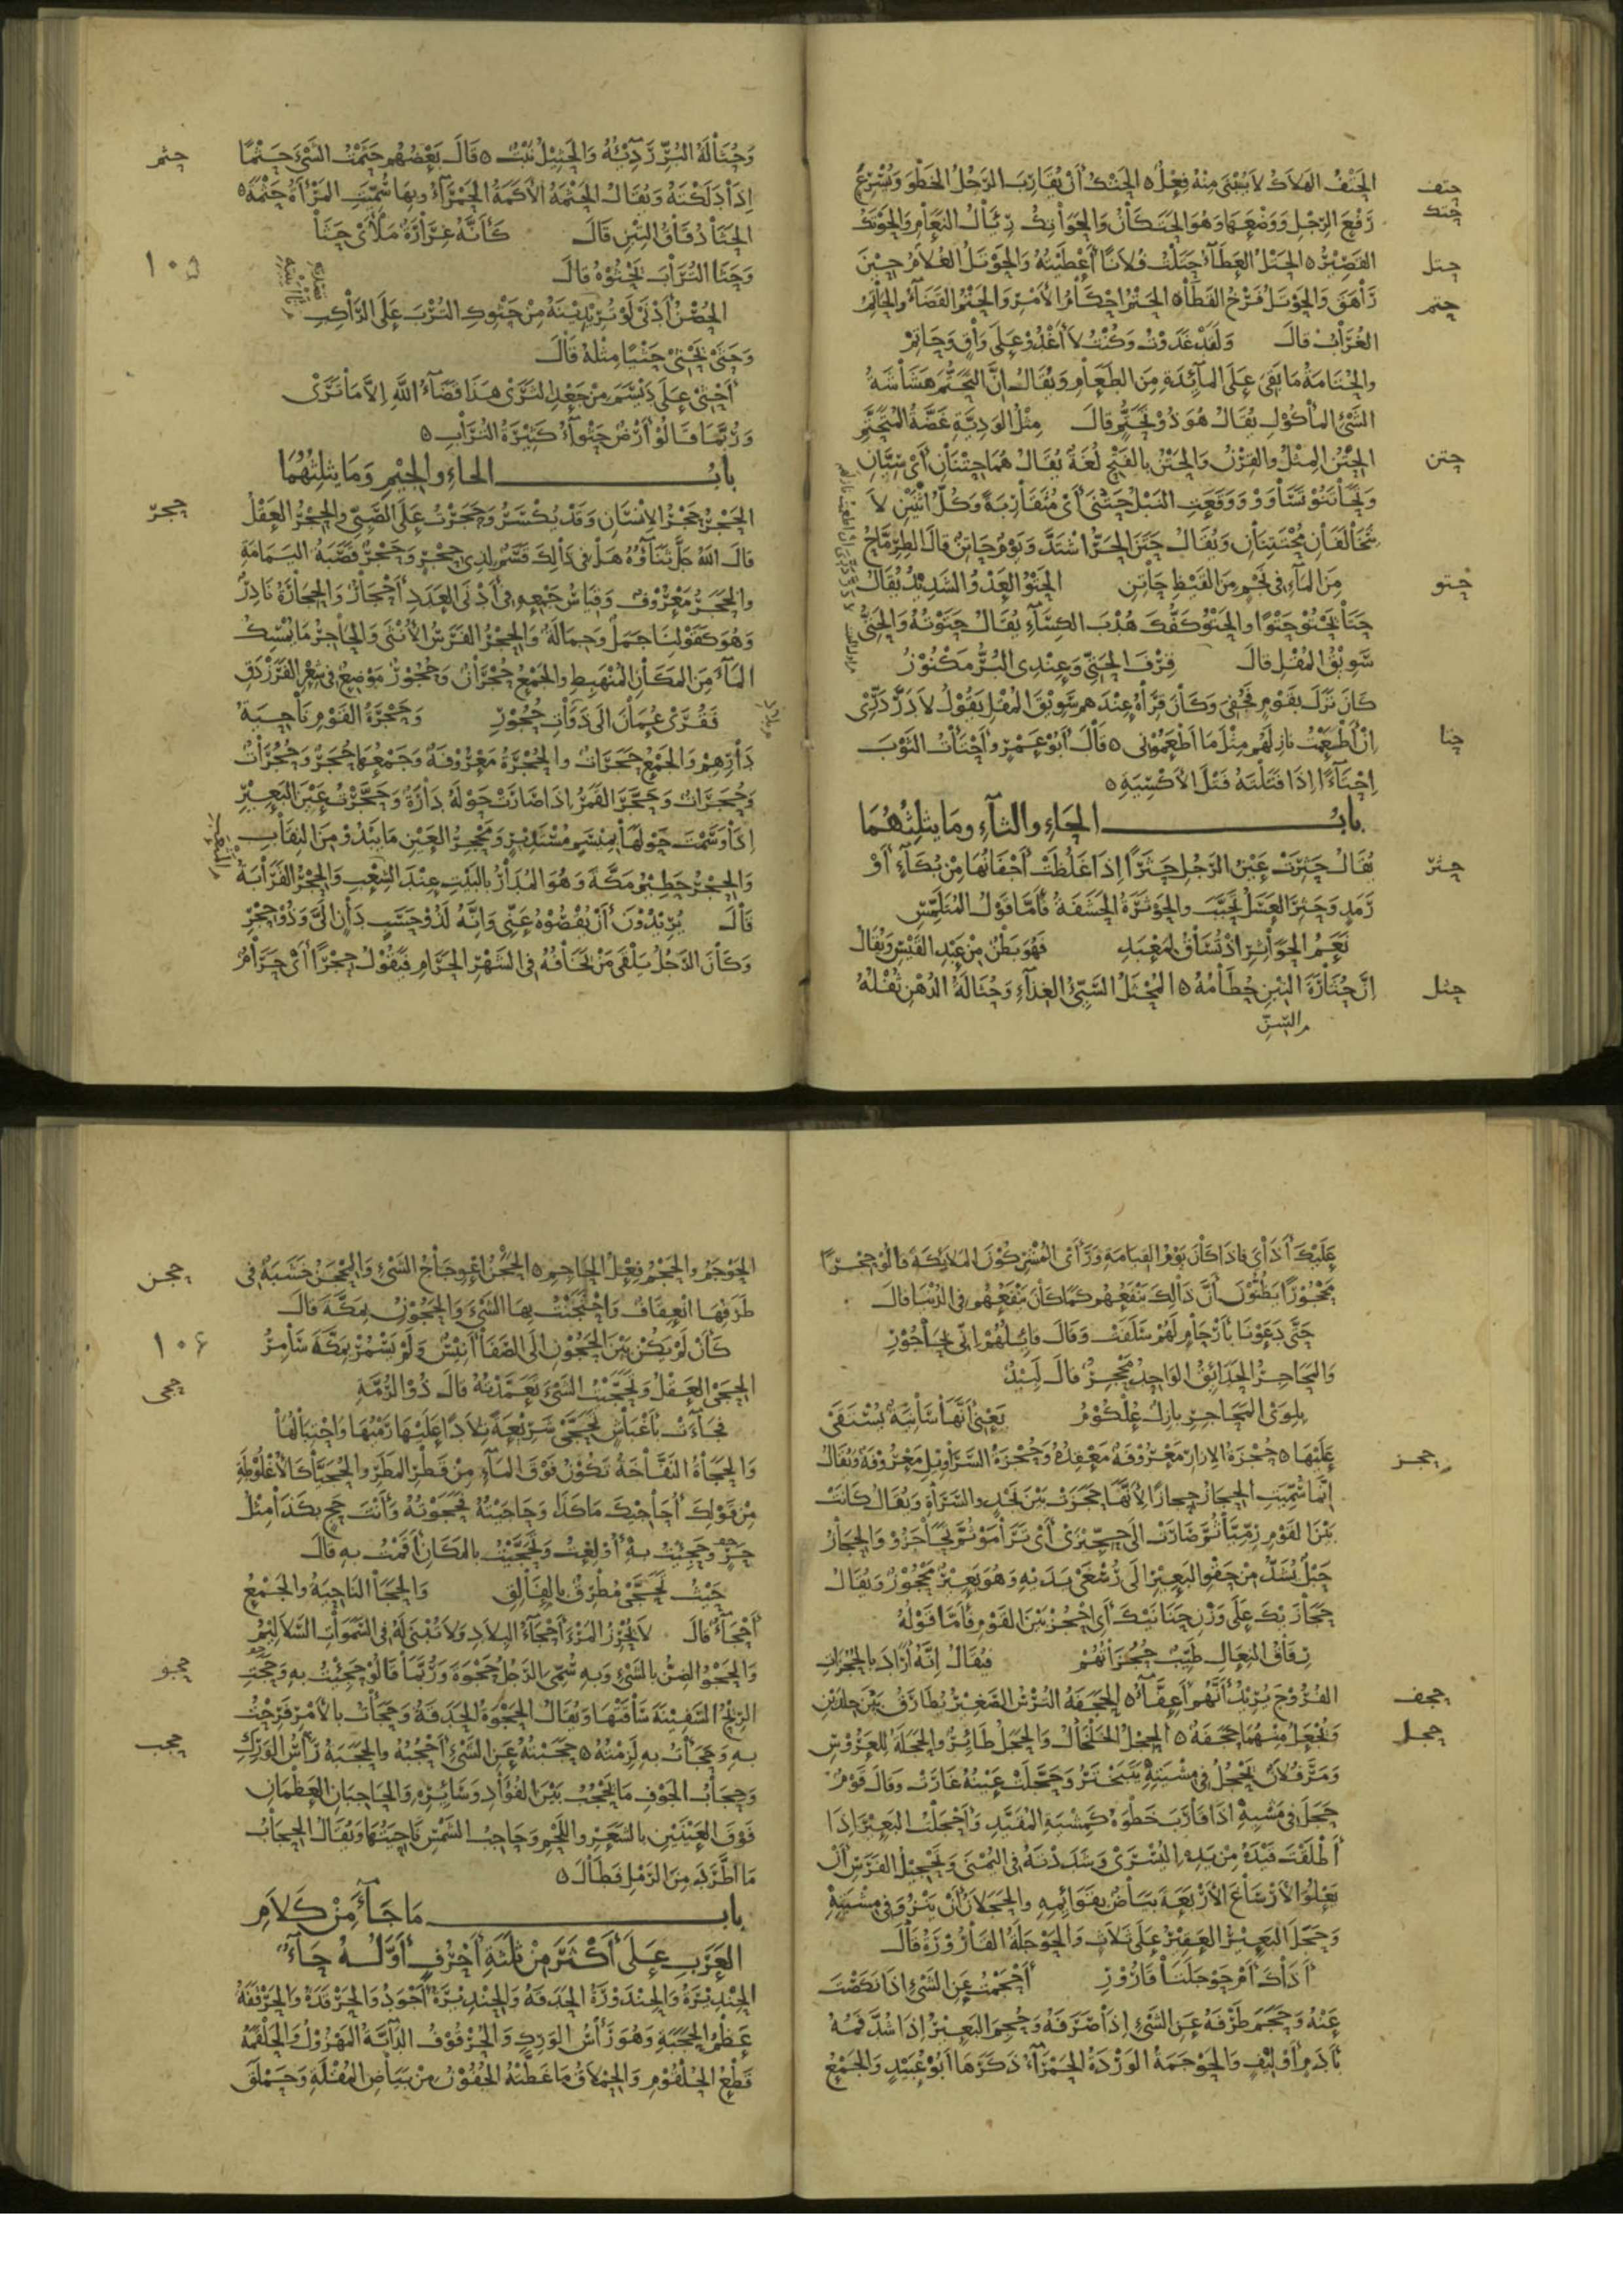 حتف الحَتْفُ الهَلَاكُ لَا يُبْنَى مِنْهُ فِعْلٌ ٥ الحَتْكُ أَنْ يُقَارِبَ الرَّجُلُ الخَطْوَ وَيُسْرِعُ
حتك رَفْعَ الرِّجْلِ وَوَضْعَهَا وَهُوَ الحَتَكَانُ وَالحَوَاتِكُ رِئَالُ النَّعَامِ وَالحَوْتَكُ
حتل القَصِيْرُ ٥ الحَتْلُ العَطَآءُ حَتَلْتُ فُلَانًا أَعْطَيْتُهُ وَالحَوْتَلُ الغُلَامُ حِيْنَ
حتم رَاهَقَ وَالحَوْتَلُ فَرْخُ القَطَا ٥ الحَتْمُ احْكَامُ الأَمْرِ وَالحَتْمُ القَضَآءُ وَالحَاتِمُ
الغُرَابُ قالَ وَلَقَدْ غَدَوْتُ وَكُنْتُ لَا أَغْدُوْ عَلَى وَاقٍ وَحَاتِمْ
والحُتَامَةُ مَا بَقِيَ عَلَى المَآئِدَةِ مِنَ الطَّعَامِ وَيُقَالُ إِنَّ التَّحَتُّمَ هَشَاشَةُ
الشَّيْءِ المَأْكُوْلِ يُقَالُ هُوَ ذُوْ تَحَتُّمٍ قالَ مِثْلُ الوَدِيَّةِ غَضَّةُ المُتَحَتَّمِ
حتن الحِتْنُ المِثْلُ والقِرْنُ وَالحَتْنُ بِالفَتْحِ لُغَةٌ يُقَالُ هُمَا حِتْنَانِ أَيْ سِيَّانِ
وَتَحَاتَنُوْا تَسَاوَوْا وَوَقَعَتِ النَّبْلُ حَتَنَى أَيْ مُتَقَارِبَةً وَكُلُّ اثْنَيْنِ لَا
يَتَخَالَفَانِ مُحْتَتِنَانِ وَيُقَالُ حَتَنَ الحَرُّ اشْتَدَّ وَيَوْمٌ حَاتِنٌ قالَ الطِّرِمَّاحُ
حتو مِنَ المَآءِ فِي نَجْمٍ مِنَ القَيْظِ حَاتِنِ الحَتْوُ العَدْوُ الشَّدِيْدُ يُقَالُ
حَتَا يَحْتُوْ حَتْوًا والحَتْوُ كَفُّكَ هُدْبَ الكِسَآءِ يُقَالُ حَتَوْتُهُ وَالحَتِيُّ
سَوِيْقُ المُقْلِ قالَ قِرْفَ الحَتِيِّ وَعِنْدِى البُرُّ مَكْنُوْزُ
كَانَ نَزَلَ بِقَوْمٍ وَكَانَ قِرَاهُ عِنْدَهُمْ سَوِيْقَ المُقْلِ يَقُوْلُ لَا دَرَّ دَرِّي
حتا إِنْ أَطْعَمْتُ نَازِلَهُمْ مِثْلَ مَا أَطْعَمُوْنِي ٥ قَالَ أَبُوْ عَمْرٍو أَحْتَأْتُ الثَّوْبَ
إِحْتَآءً إِذَا فَتَلْتَهُ فَتْلَ الأَكْسِيَةِ ٥
بابُ الحَاءِ والثآءِ وَمَا يَثْلِثُهُمَا
حثر يُقَالُ حَثِرَتْ عَيْنُ الرَّجُلِ حَثَرًا إِذَا غَلُظَتْ أَجْفَانُهَا مِنْ بُكَآءٍ أَوْ
رَمَدٍ وَحَثِرَ العَسَلُ تَحَبَّبَ والحَوْثَرَةُ الحَشَفَةُ فَأَمَّا قَوْلُ المُتَلَمِّسِ
نَعَمُ الحَوَاثِرِ إِذْ تُسَاقُ لِمَعْبَدِ فَهُوَ بَطْنٌ مِنْ عَبْدِ القَيْسِ وَيُقَالُ
حثل إِنَّ حُثَارَةَ التِّبْنِ حُطَامُهُ ٥ المُحْثَلُ السَّيِّئُ الغِذَآءِ وَحُثَالَةُ الدُّهْنِ ثُفْلُهُ
وَحُثَالَةُ البُرِّ رَدِيْئُهُ وَالحِثْيَلُ نَبْتٌ ٥ قالَ بَعْضُهُمْ حَثَمْتُ الشَّيْءَ حَثْمًا حثم
إِذَا دَلَكْتَهُ وَيُقَالُ الحَثْمَةُ الأَكَمَةُ الحَمْرَآءُ وَبِهَا سُمِّيَتِ المَرْأَةُ حَثْمَةَ ٥
الحَثَا دُقَاقُ التِّبْنِ قَالَ كَأَنَّهُ غِرَارَةٌ مَلْأَى حَثَا
١٠٥ وَحَثَا التُّرَابَ يَحْثُوْهُ قالَ
الحُصْنُ أَدْنَى لَوْ تُرِيْدِيْنَهُ مِنْ حَثْوِكِ التُّرْبَ عَلَى الرَّاكِبِ
وَحَثَى يَحْثِيْ حَثْيًا مِثْلَهُ قَالَ
أَحْثِيْ عَلَى دَيْسَمَ مِنْ جَعْدِ الثَّرَى هَذَا قَضَآءُ اللَّهِ إِلَّا مَا تَرَى
وَرُبَّمَا قَالُوْا أَرْضٌ حَثْوَآءُ كَثِيْرَةُ التُّرَابِ ٥
بابُ الحاءِ والجيمِ وَمَا يثلِثُهُمَا
حجر الحَجْرُ حَجْرُ الإِنْسَانِ وَقَدْ يُكْسَرُ وَحَجَرْتُ عَلَى الصَّبِيِّ والحِجْرُ العَقْلُ
قالَ اللَّهُ جَلَّ ثَنَاؤُهُ هَلْ فِي ذَالِكَ قَسَمٌ لِذِي حِجْرٍ وَحَجْرٌ قَصَبَةُ اليَمَامَةِ
والحَجَرُ مَعْرُوْفٌ وَقِيَاسُ جَمْعِهِ فِي أَدْنَى العَدَدِ أَحْجَارٌ وَالحِجَارَةُ نَادِرٌ
وَهُوَ كَقَوْلِنَا جَمَلٌ وَجِمَالَةٌ وَالحِجْرُ الفَرَسُ الأُنْثَى وَالحَاجِرُ مَا يُمْسِكُ
المَآءَ مِنَ المَكَانِ المُنْهَبِطِ والجَمْعُ حُجْرَانٌ وَحُجُوْرٌ مَوْضِعٌ فِي شِعْرِ الفَرَزْدَقِ
فَقُرَى عُمَانَ إِلَى ذَوَاتِ حُجُوْرِ وَحَجْرَةُ القَوْمِ نَاحِيَةُ
دَارِهِمْ وَالجَمْعُ حَجَرَاتٌ والحُجْرَةُ مَعْرُوْفَةٌ وَجَمْعُهَا حُجَرٌ وَحُجُرَاتٌ
وَحُجَرَاتٌ وَحَجَّرَ القَمَرُ إِذَا صَارَتْ حَوْلَهُ دَارَةٌ وَحَجَّرْتُ عَيْنَ البَعِيْرِ
إِذَا وَسَمْتَ حَوْلَهَا بِمِيْسَمٍ مُسْتَدِيْرٍ وَمَحْجِرُ العَيْنِ مَا يَبْدُوْ مِنَ النِّقَابِ
وَالحِجْرُ حَطِيْمُ مَكَّةَ وَهُوَ المُدَارُ بِالبَيْتِ عِنْدَ الشِّعْبِ وَالحِجْرُ القَرَابَةُ
قَالَ يُرِيْدُوْنَ أَنْ يُقْصُوْهُ عَنِّي وَإِنَّهُ لَذُوْ حَسَبٍ دَانٍ إِلَيَّ وَذُوْ حِجْرِ
وَكَانَ الرَّجُلُ يَلْقَى مَنْ يَخَافُهُ فِي الشَّهْرِ الحَرَامِ فَيَقُوْلُ حِجْرًا أَيْ حَرَامٌ
عَلَيْكَ أَذَايَ فَإِذَا كَانَ يَوْمُ القِيَامَةِ وَرَأَى المُشْرِكُوْنَ المَلَائِكَةَ قَالُوْا حِجْرًا
مَحْجُوْرًا يَظُنُّوْنَ أَنَّ ذَالِكَ يَنْفَعُهُمْ كَمَا كَانَ يَنْفَعُهُمْ فِي الدُّنْيَا قالَ
حَتَّى دَعَوْنَا بِأَرْحَامٍ لَهُمْ سَلَفَتْ وَقَالَ قَائِلُهُمْ إِنِّي بِحَاجُوْرِ
وَالمَحَاجِرُ الحَدَائِقُ الوَاحِدُ مَحْجِرٌ قالَ لَبِيْدٌ
بِلِوَى المَحَاجِرِ بَازِلٌ عُلْكُوْمُ يَعْنِي أَنَّهَا سَانِيَةٌ يُسْتَقَى
حجز عَلَيْهَا ٥ حُجْزَةُ الإِزَارِ مَعْرُوْفَةٌ مَعْقِدُهُ وَحُجْزَةُ السَّرَاوِيْلِ مَعْرُوْفَةٌ وَيُقَالُ
إِنَّمَا سُمِّيَتِ الحِجَازُ حِجَازًا لِأَنَّهَا حَجَزَتْ بَيْنَ نَجْدٍ والسَّرَاةِ وَيُقَالُ كَانَتْ
بَيْنَ القَوْمِ رِمِّيَّا ثُمَّ صَارَتْ إِلَى حِجِّيْزَى أَيْ تَرَامَوْا ثُمَّ تَحَاجَزُوْا وَالحِجَازُ
حَبْلٌ يُشَدُّ مِنْ حَقْوِ البَعِيْرِ إِلَى رُسْغَيْ يَدَيْهِ وَهُوَ بَعِيْرٌ مَحْجُوْزٌ وَيُقَالُ
حَجَازَيْكَ عَلَى وَزْنِ حَنَانَيْكَ أَيْ احْجُزْ بَيْنَ القَوْمِ فَأَمَّا قَوْلُهُ
رِقَاقُ النِّعَالِ طَيِّبٌ حُجُزَاتُهُمْ فَيُقَالُ إِنَّهُ أَرَادَ بِالحُجُزَاتِ
حجف الفُرُوْجَ يُرِيْدُ أَنَّهُمْ أَعِفَّآءُ ٥ الحَجَفَةُ التُّرْسُ الصَّغِيْرُ يُطَارَقُ بَيْنَ جِلْدَيْنِ
حجل وَتُجْعَلُ مِنْهُمَا حَجَفَةٌ ٥ الحِجْلُ الخَلْخَالُ وَالحَجَلُ طَائِرٌ والحَجَلَةُ لِلعَرُوْسِ
وَمَرَّ فُلَانٌ يَحْجُلُ فِي مِشْيَتِهِ يَتَبَخْتَرُ وَحَجَّلَتْ عَيْنُهُ غَارَتْ وَقالَ قَوْمٌ
حَجَلَ فِي مَشْيِهِ إِذَا قَارَبَ خَطْوَهُ كَمِشْيَةِ المُقَيَّدِ وَأَحْجَلْتُ البَعِيْرَ إِذَا
أَطْلَقْتَ قَيْدَهُ مِنْ يَدِهِ اليُسْرَى وَشَدَدْتَهُ فِي اليُمْنَى وَتَحْجِيْلُ الفَرَسِ أَنْ
يَعْلُوَ الأَرْسَاغَ الأَرْبَعَةَ بَيَاضٌ بِقَوَائِمِهِ والحَجَلَانُ أَنْ يَنْزُوَ فِي مِشْيَتِهِ
وَحَجَلَ البَعِيْرُ العَقِيْرُ عَلَى ثَلَاثٍ وَالحَوْجَلَةُ القَارُوْرَةُ قَالَ
أَذَاكَ أَمْ حَوْجَلَتَا قَارُوْرِ أَحْجَمْتُ عَنِ الشَّيْءِ إِذَا نَكَصْتَ
عَنْهُ وَحَجَمَ طَرْفَهُ عَنِ الشَّيْءِ إِذَا صَرَفَهُ وَحُجِمَ البَعِيْرُ إِذَا شُدَّ فَمُهُ
بِأَدَمٍ أَوْ لِيْفٍ وَالحَوْجَمَةُ الوَرْدَةُ الحَمْرَآءُ ذَكَرَهَا أَبُوْ عُبَيْدٍ وَالجَمْعُ
حجن الحَوْجَمُ والحَجْمُ فِعْلُ الحَاجِمِ ٥ الحَجَنُ اعْوِجَاجُ الشَّيْءِ وَالمِحْجَنُ خَشَبَةٌ فِي
طَرَفِهَا انْعِقَافٌ وَاحْتَجَنْتُ بِهَا الشَّيْءَ وَالحَجُوْنُ بِمَكَّةَ قالَ
١٠٦ كَأَنْ لَمْ يَكُنْ بَيْنَ الحَجُوْنِ إِلَى الصَّفَا أَنِيْسٌ وَلَمْ يَسْمُرْ بِمَكَّةَ سَامِرُ
حجى الحِجَى العَقْلُ وَتَحَجَّيْتُ الشَّيْءَ تَعَمَّدْتُهُ قالَ ذُو الرُّمَّةِ
فَجَآءَتْ بِأَغْبَاشٍ تَحَجَّى شَرِيْعَةً تِلَادًا عَلَيْهَا رَمْيُهَا وَاحْتِبَالُهَا
وَالحَجَاةُ النُّفَّاخَةُ تَكُوْنُ فَوْقَ المَآءِ مِنْ قَطْرِ المَطَرِ والحُجَيَّا كَالأُغْلُوْطَةِ
مِنْ قَوْلِكَ أُحَاجِيْكَ مَا كَذَا وَحَاجَيْتُهُ فَحَجَوْتُهُ وَأَنْتَ حَجٍ بِكَذَا مِثْلُ
حَرٍ وَحَجِئْتُ بِهِ أُوْلِعْتُ وَتَحَجَّيْتُ بِالمَكَانِ أَقَمْتُ بِهِ قالَ
حَيْثُ تَحَجَّى مُطْرِقٌ بِالفَالِقِ وَالحَجَا النَّاحِيَةُ وَالجَمْعُ
أَحْجَآءٌ قالَ لَا يُحْرِزُ المَرْءَ أَحْجَآءُ البِلَادِ وَلَا تُبْنَى لَهُ فِي السَّمَوَاتِ السَّلَالِيْمُ
حجو وَالحَجْوُ الضَّنُّ بِالشَّيْءِ وَبِهِ سُمِّيَ الرَّجُلُ حَجْوَةَ وَرُبَّمَا قَالُوْا حَجِئْتُ بِهِ وَحَجَتِ
الرِّيْحُ السَّفِيْنَةَ سَاقَتْهَا وَيُقَالُ الحَجْوَةُ الحَدَقَةُ وَحَجَأْتُ بِالأَمْرِ فَرِحْتُ
حجب بِهِ وَحَجَأْتُ بِهِ لَزِمْتُهُ ٥ حَجَبْتُهُ عَنِ الشَّيْءِ أَحْجُبُهُ والحَجَبَةُ رَأْسُ الوَرِكِ
وَحِجَابُ الجَوْفِ مَا يَحْجُبُ بَيْنَ الفُؤَادِ وَسَائِرِهِ وَالحَاجِبَانِ العَظْمَانِ
فَوْقَ العَيْنَيْنِ بِالشَّعَرِ واللَّحْمِ وَحَاجِبُ الشَّمْسِ نَاحِيَتُهَا وَيُقَالُ الحِجَابُ
مَا اطَّرَدَ مِنَ الرَّمْلِ فَطَالَ ٥
باب مَا جَآءَ مِنْ كَلَامِ
العَرَبِ عَلَى أَكْثَرَ مِنْ ثَلَثَةِ أَحْرُفٍ أَوَّلُهُ حَآءٌ
الحِنْدِيْرَةُ وَالحِنْدَوْرَةُ الحَدَقَةُ وَالحِنْدِيْرَةُ أَجْوَدُ وَالحَرْقَدَةُ وَالحَرْقَفَةُ
عَظْمُ الحَجَبَةِ وَهُوَ رَأْسُ الوَرِكِ وَالحُرْقُوْفُ الدَّآبَّةُ المَهْزُوْلُ وَالحَلْقَمَةُ
قَطْعُ الحُلْقُوْمِ وَالحِمْلَاقُ مَا غَطَّتْهُ الجُفُوْنُ مِنْ بَيَاضِ المُقْلَةِ وَحَمْلَقَ